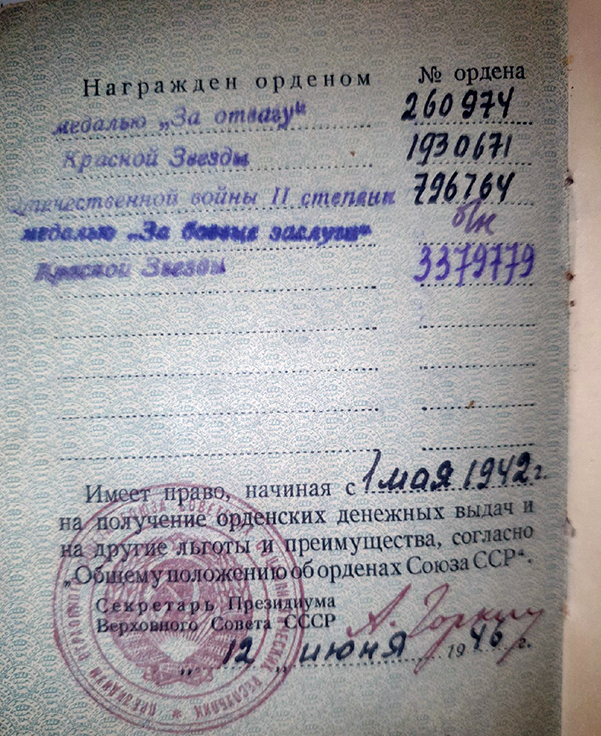 Награжден орденом № ордена
медалью „За отвагу“ 260974
Красной Звезды 1930671
Отечественной войны II степени 796764
медалью „За боевые заслуги“ б/н
Красной Звезды 3379779
Имеет право, начиная с 1 мая 1942 г.
на получение орденских денежных выдач и
на другие льготы и преимущества, согласно
„Общему положению об орденах Союза ССР“.
Секретарь Президиума
Верховного Совета СССР А. Горкин
„ 12 „ июня 1946 г.